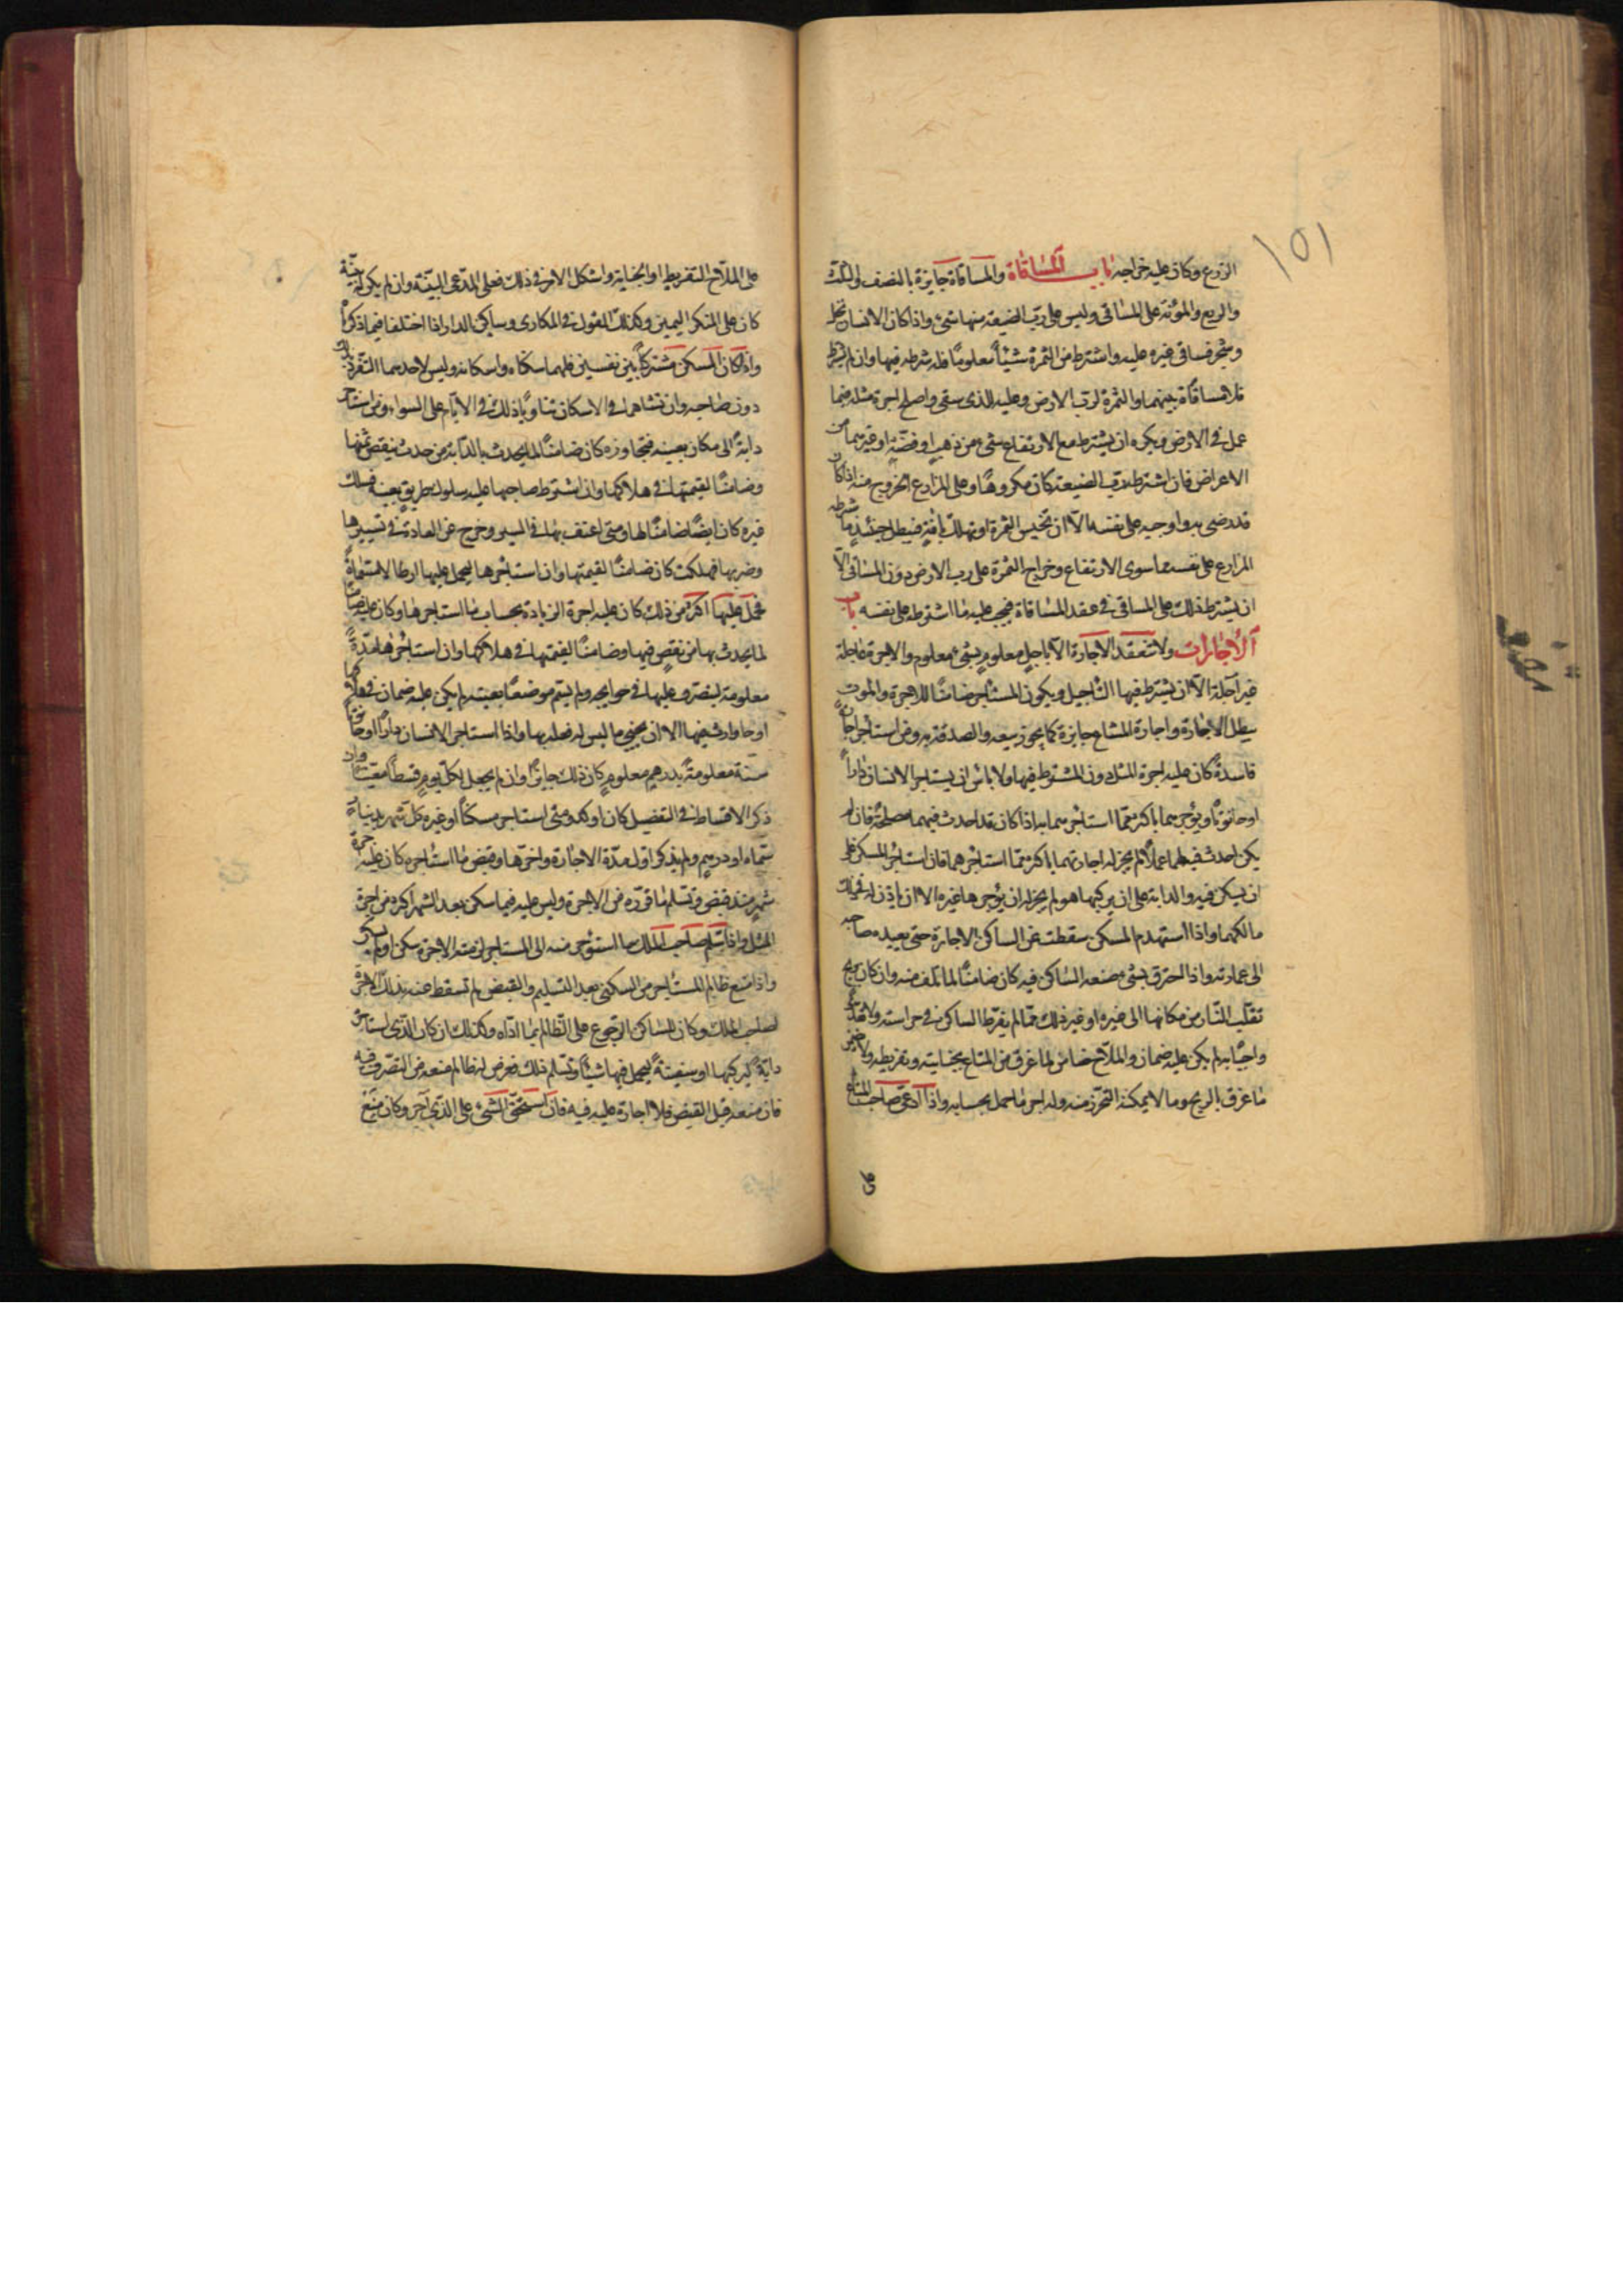 ١٥١
الزرع وكان عليه خراجه باب المساقاة والمساقاة جايزة بالنصف والثلث
والربع والمؤنة على المساقي وليس على رب الضيعة منها شيء واذا كان الانسان نخل
وشجر فساقى غيره عليه واشترط من الثمرة شيئاً معلومًا فله شرطه فيها وان لم يشترط
فلا مساقاة بينهما والثمرة لرب الارض وعليه للذي سقى واصلح اجرة مثله فيما
عمل في الارض ويكره ان يشترط مع الارتفاع شيء من ذهب او فضّة او غيرهما من
الاعراض فان اشترط رب الضيعة كان مكروهًا وعلى المزارع الخروج منه اذا كان
قد رضي به واوجبه على نفسه الا ان تخيس الثمرة او تهلك بافة فيبطل حينئذ ما شرطه
المزارع على نفسه مما سوى الارتفاع وخراج الثمرة على رب الارض دون المساقي الا
ان يشترط ذلك على المساقي في عقد المساقاة فيجب عليه ما اشترطه على نفسه باب
الاجارات ولا تنعقد الاجارة الا باجل معلوم بشيء معلوم والاجرة عاجلة
غير آجلة الا ان يشترط فيها التاجيل ويكون المستأجر ضامنًا للاجرة والموت
يبطل الاجارة واجارة المشاع جايزة كما يجوز بيعه والصدقة به ومن استأجر اجارة
فاسدة كان عليه اجرة المثل دون المشترط فيها ولا باس ان يستاجر الانسان دارًا
او حانوتًا ويؤجرهما باكثر مما استأجرهما به اذا كان قد احدث فيهما مصلحة فان لم
يكن احدث فيهما عملاً لم يجز له اجارتهما باكثر مما استأجرهما فان استأجر المسكن على
ان يسكن فيه والدابة على ان يركبها هو لم يجز له ان يؤجرها غيره الا ان ياذن له في ذلك
مالكهما واذا استهدم المسكن سقطت عن الساكن الاجارة حتى يعيده صاحبه
الى عمارته واذا احترق بشيء صنعه الساكن فيه كان ضامنًا لما تلف منه وان كان بريح
تقلب النار من مكانها الى غيره او غير ذلك مما لم يفرط الساكن في حراسته ولا تعدى
واجبًا به لم يكن عليه ضمان والملاح ضامن لما غرق من المتاع بجنايته وتفريطه ولا يضمن
ما غرق بالريح وما لا يمكنه التحرز منه وله اجر ما حمل بحسابه واذا ادعى صاحب المتاع
على الملاح التفريط او الجناية واشكل الامر في ذلك فعلى المدعي البينة وان لم يكن له بينة
كان على المنكر اليمين وكذلك القول في المكاري وساكن الدار اذا اختلفا فيما ذكرناه
واذا كان المسكن مشتركًا بين نفسين فلهما سكناه واسكانه وليس لاحدهما التفرد بذلك
دون صاحبه وان تشاهرا في الاسكان تناوبا ذلك في الايام على السواء ومن استاجر
دابة الى مكان بعينه فتجاوزه كان ضامنًا لما يحدث بالدابة من حدث ينقص ثمنها
وضامنًا لقيمتها في هلاكها وان اشترط صاحبها عليه سلوك طريق بعينه فسلك
غيره كان ايضًا ضامنًا لها ومتى اعنف بها في السير وخرج عن العادة في تسييرها
وضربها فهلكت كان ضامنًا لقيمتها وان استاجرها ليحمل عليها ارطالا مسماة
فحمل عليها اكثر من ذلك كان عليه اجرة الزيادة بحساب ما استاجرها وكان عليه ضامنًا
لما يحدث بها من نقص فيها وضامنًا لقيمتها في هلاكها وان استأجرها مدة
معلومة ليتصرف عليها في حوايجه ولم يسم موضعًا بعينه لم يكن عليه ضمان في هلاكها
او حادث فيها الا ان يجني ما ليس له فعله بها واذا استاجر الانسان دارًا او حانوتًا
سنة معلومة بدرهم معلوم كان ذلك جايزًا وان لم يجعل لكل يوم قسطًا معينًا وان
ذكر الاقساط في التفضيل كان اوكد ومتى استاجر مسكنًا او غيره كل شهر بدينار
سماه او درهم ولم يذكر اول مدة الاجارة واخرها وقبض ما استأجره كان عليه اجرة
شهر منذ قبض وتسلم ما قرره من الاجرة وليس عليه فيما سكن بعد الشهر اكثر من اجرة
المثل واذا سلم صاحب الملك ما استؤجر منه الى المستاجر لزمته الاجرة سكن او لم يسكن
واذا منع ظالم المستأجر من السكنى بعد التسليم والقبض لم تسقط عنه بذلك الاجرة
لصاحب الملك وكان للساكن الرجوع على الظالم بما ادّاه وكذلك ان كان الذي استاجر
دابة ليركبها او سفينة ليحمل فيها شيئًا وتسلم ذلك فعرض له ظالم منعه من التصرف فيه
فان منعه قبل القبض فلا اجارة عليه فيه فان استحق الشيء على الذي آجر وكان منع